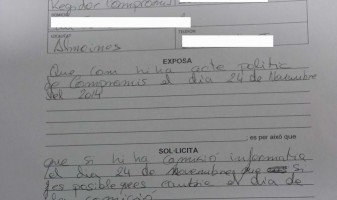 Regidor Compromís
LOCALITAT
Almoines
TELÈFON
EXPOSA
Que com hi ha acte polític
de Compromís el dia 24 de Novembre
del 2014
; es per això que
SOL·LICITA
que si hi ha comisió informativa
el dia 24 de Novembre si
fos posible es canvie el dia de
la comisió